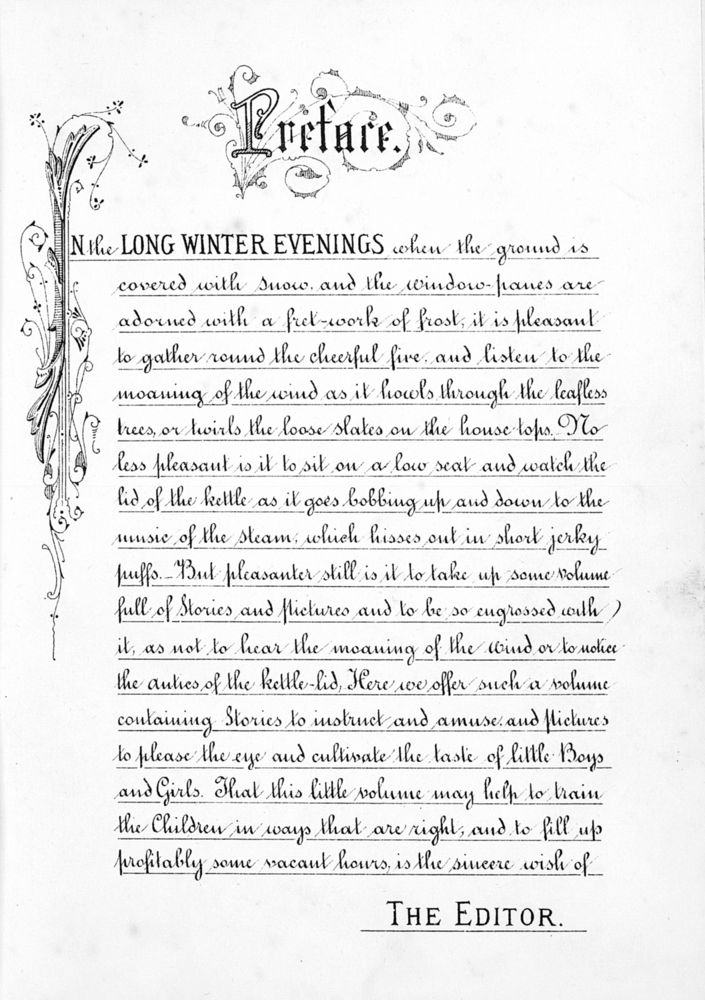 Preface.
IN the LONG WINTER EVENINGS when the ground is
covered with snow, and the window-panes are
adorned with a fret-work of frost, it is pleasant
to gather round the cheerful fire, and listen to the
moaning of the wind as it howls through the leafless
trees, or twirls the loose slates on the house tops. No
less pleasant is it to sit on a low seat and watch the
lid of the kettle as it goes bobbing up and down to the
music of the steam, which hisses out in short jerky
puffs._ But pleasanter still is it to take up some volume
full of Stories and Pictures and to be so engrossed with
it, as not to hear the moaning of the wind or to notice
the antics of the kettle-lid, Here we offer such a volume
containing Stories to instruct and amuse, and Pictures
to please the eye and cultivate the taste of little Boys
and Girls. That this little volume may help to train
the Children in ways that are right, and to fill up
profitably some vacant hours, is the sincere wish of
THE EDITOR.